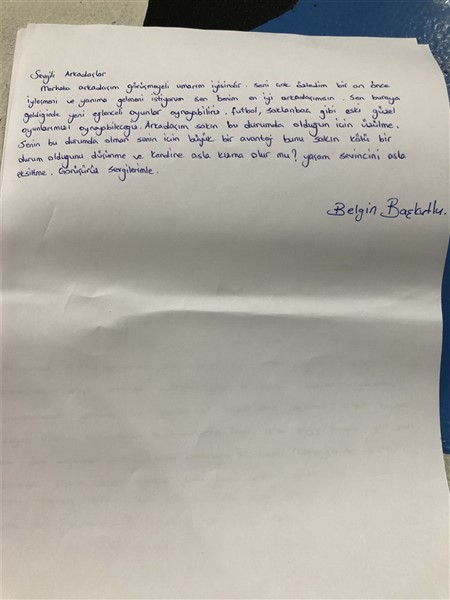 Sevgili Arkadaşlar
Merhaba arkadaşım görüşmeyeli umarım iyisindir. Seni çok özledim bir an önce
iyileşmeni ve yanıma gelmeni istiyorum sen benim en iyi arkadaşımsın. Sen buraya
geldiğinde yeni eğlenceli oyunlar oynayabiliriz. futbol, saklanbaç gibi eski güzel
oyunlarımızı oynayabileceğiz. Arkadaşım sakın bu durumda olduğun için üzülme.
Senin bu durumda olman senin için büyük bir avantaj bunu sakın kötü bir
durum olduğunu düşünme ve kendine asla kızma olur mu? yaşam sevincini asla
eksiltme. Görüşürüz sevgilerimle.
Belgin Başkutlu.